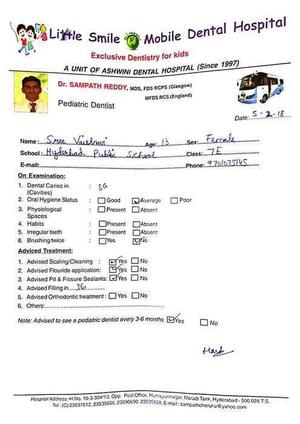 Little Smile Mobile Dental Hospital
Exclusive Dentistry for kids
A UNIT OF ASHWINI DENTAL HOSPITAL (Since 1997)
Dr. SAMPATH REDDY, MDS, FDS RCPS (Glasgow)
MFDS RCS (England)
Pediatric Dentist
Date: 5-2-18
Name: Sree Vaishnavi Age: 13 Sex: Female
School: Hyderabad Public School Class: 7E
E-mail: Phone: 9701075145
On Examination:
1. Dental Caries in (Cavities) 36
2. Oral Hygiene Status Good Average Poor
3. Physiological Spaces Present Absent
4. Habits Present Absent
5. Irregular teeth Present Absent
6. Brushing twice Yes No
Adviced Treatment:
1. Advised Scaling/Cleaning : Yes No
2. Advised Flouride application: Yes No
3. Advised Pit & Fissure Sealants: Yes No
4. Advised Filling in 36
5. Advised Orthodontic treatment : Yes No
Note: Advised to see a pediatric dentist every 3-6 months Yes No
Hospital Address: H No. 10-3-304/13, Opp. Post Office, Humayunnagar, Masab Tank, Hyderabad - 500 028 T.S.